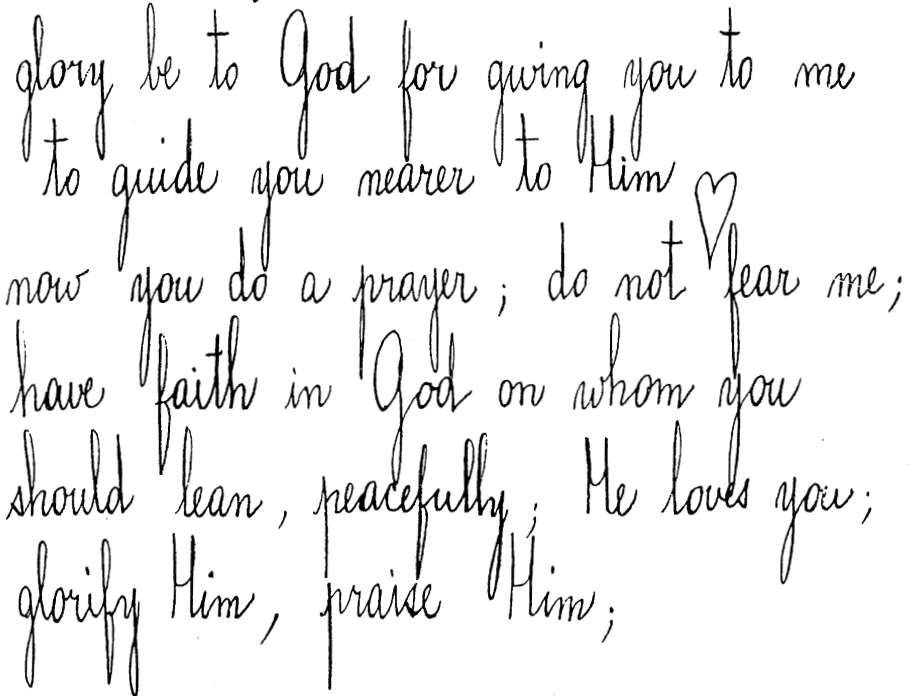 glory be to God for giving you to me
to guide you nearer to Him
now you do a prayer; do not fear me;
have faith in God on whom you
should lean, peacefully; He loves you;
glorify Him, praise Him;